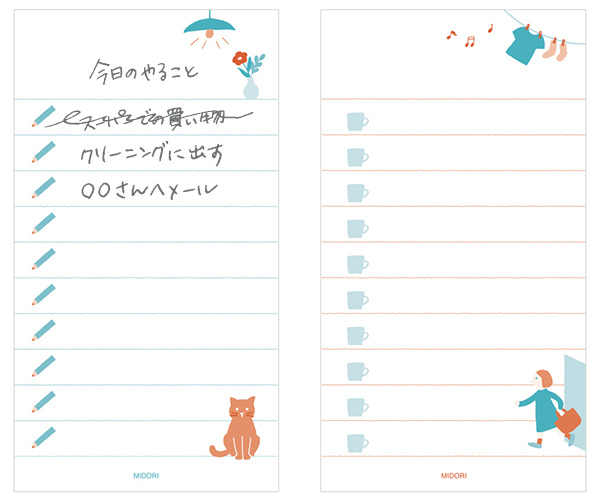 今日のやること
スーパーでの買い物
クリーニングに出す
〇〇さんへメール
MIDORI
MIDORI